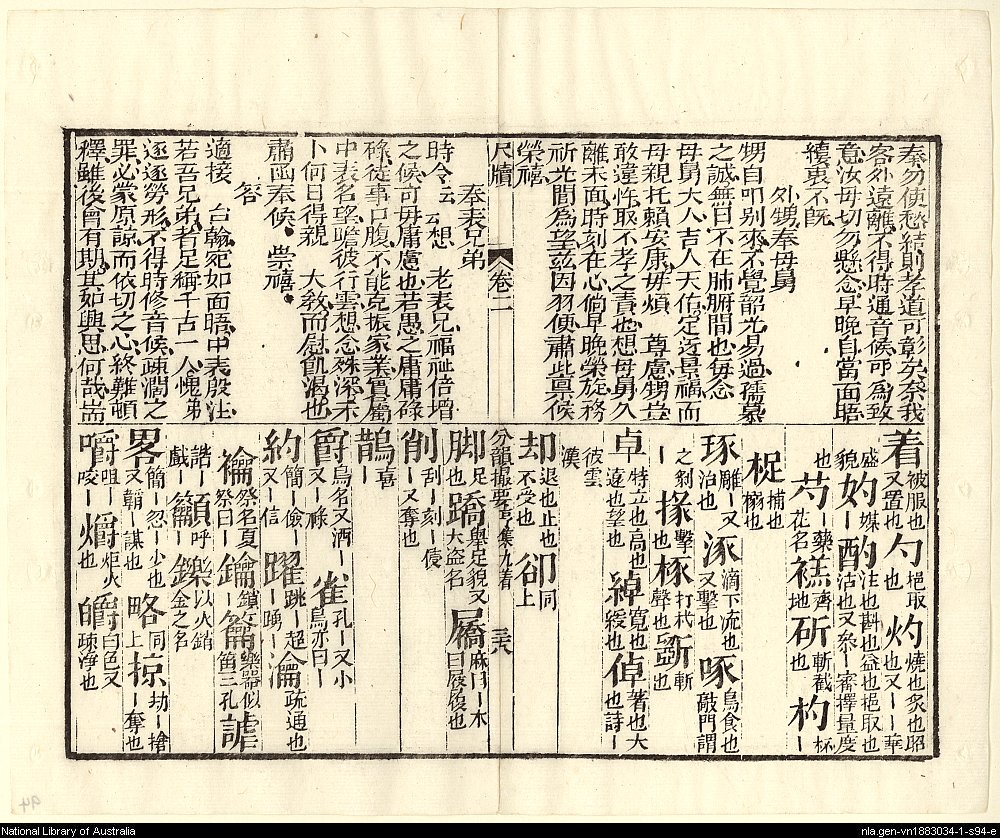 奉勿使愁結則孝道可彰矣奈我
客外遠離不得時通音候可為致
意汝母切勿懸念早晚自當面晤
續裏不旣
外甥奉母舅
甥自叩別來不覺韶光易過孺慕
之誠無日不在肺腑間也每念
母舅大人吉人天佑定迓景福而
母親托賴安康毋煩 尊慮甥豈
敢違忤取不孝之責也想母舅久
離未面時刻在心倘早晚榮旋務
祈光間為望茲因羽便肅此禀候
榮禧
尺牘
卷二
奉表兄弟
時令云云想 老表兄福祉倍增
之候可毋庸慮也若愚之庸庸碌
碌從事口腹不能克振家業實屬
中表名瑤瞻彼行雲想念殊深未
卜何日得親 大教而慰飢渴也
肅函奉候 崇禧
答
適接 台翰宛如面晤中表殷注
若吾兄弟者足稱千古一人愧弟
逐逐勞形不得時修音候疎濶之
罪必蒙原諒而依切之心終難頓
釋雖後會有期其如與思何哉耑
着被服也又置也勺挹取也灼燒也炙也昭也又丨丨華
盛妁媒丨酌沽也又參丨審擇量度也
芍丨藥花名䄩齊地斫斬截也杓杯丨
梲捕也
琢雕丨又治也涿滴下流也又擊也啄鳥食也敲門謂
之剝丨掾擊也椓打杙聲也斲斬也
卓特立也高也遠也望也綽寬也丨緩也倬著也大也詩丨
彼雲漢
却退也止也不受也卻同上
分韻撮要 亨集九着 三六
脚足也蹻舉足貌又大盜名屩麻曰丨木曰屐履也
削刮丨刻丨侵丨又奪也
鵲丨喜
爵鳥名又酒丨又丨祿雀孔丨又小鳥亦曰丨
約簡丨儉丨又丨信躍跳丨超丨踴瀹疏通也
禴祭名夏祭曰丨鑰鎖丨籥樂器似笛三孔謔
諧丨戲丨籲呼丨鑠以火銷金之名
畧簡丨忽丨少也又韜丨謀也略同上掠劫丨搶丨奪也
嚼咀丨咬丨爝丨炬火也皭白色又疎凈也
National Library of Australia
nla.gen-vn1883034-1-s94-e